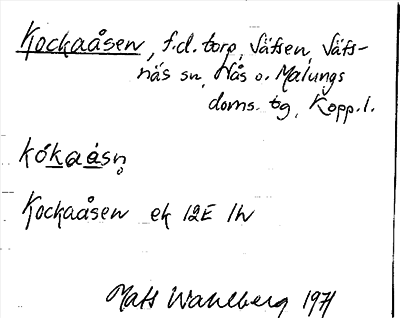 Kockaåsen, f.d. torp, Säfsen, Säfs-
näs sn, Nås o. Malungs
doms. tg, Kopp. l.
kókaåsn̥
Kockaåsen ek 12E 1h
Mats Wahlberg 1971